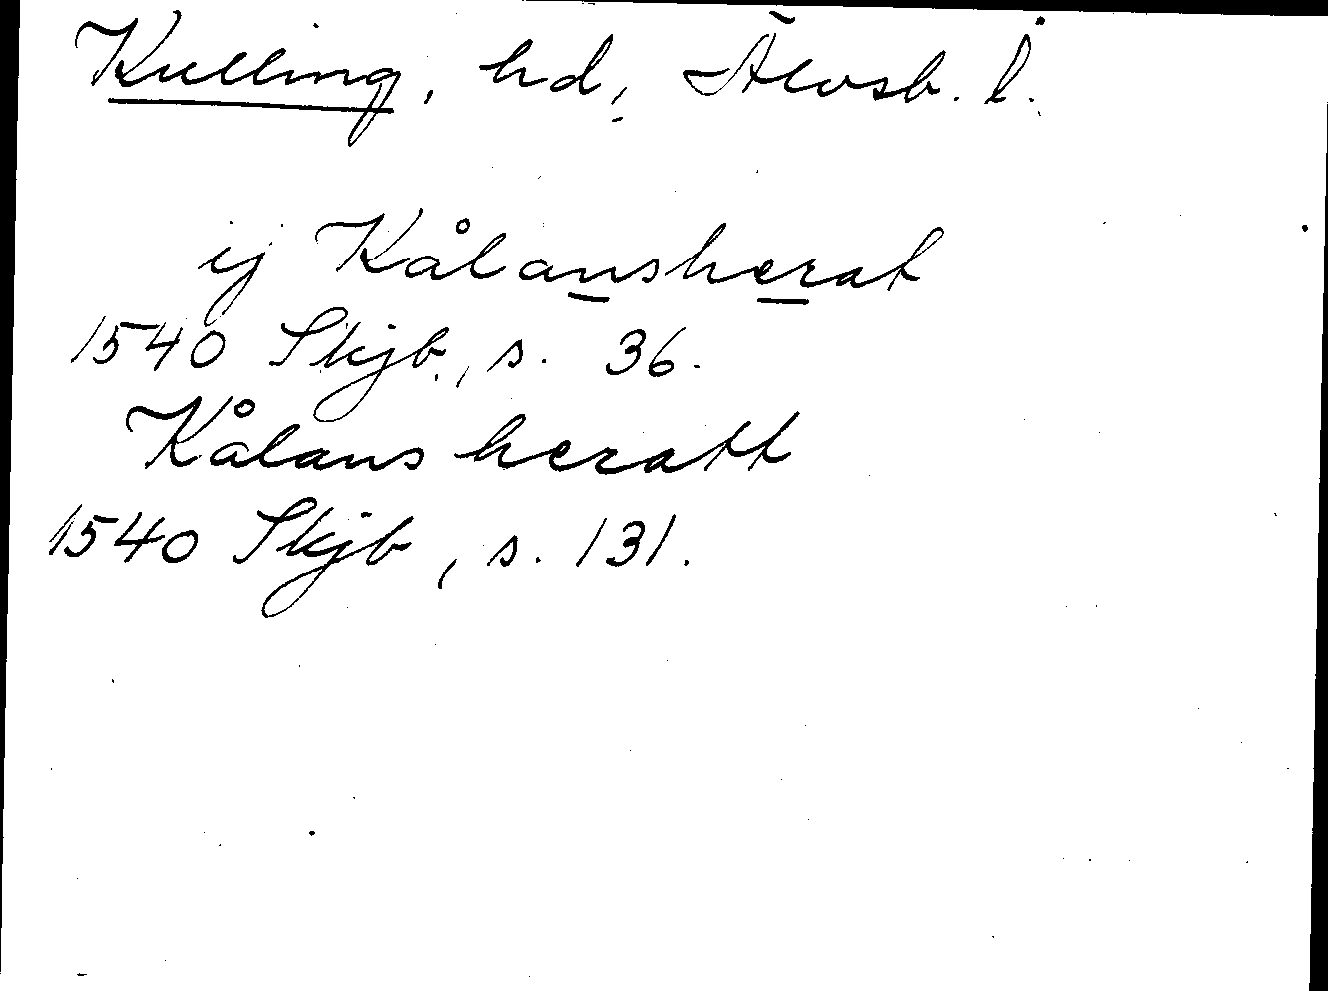 Kulling, hd, Älvsb. l.
ij Kålansherat
1540 Skjb, s. 36.
Kålans heratt
1540 Skjb, s. 131.